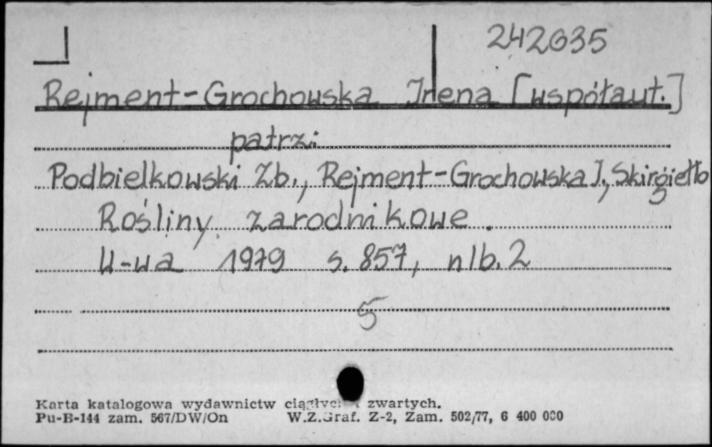 242635
Rejment-Grochowska Irena [współaut.]
patrz:
Podbielkowski Zb., Rejment-Grochowska I., Skirgiełło
Rośliny zarodnikowe.
W-wa 1979 s. 857, nlb. 2
5
Karta katalogowa wydawnictw zwartych.
Pu-B-144 zam. 567/DW/On W.Z.Graf. Z-2, Zam. 502/77, 6 400 000